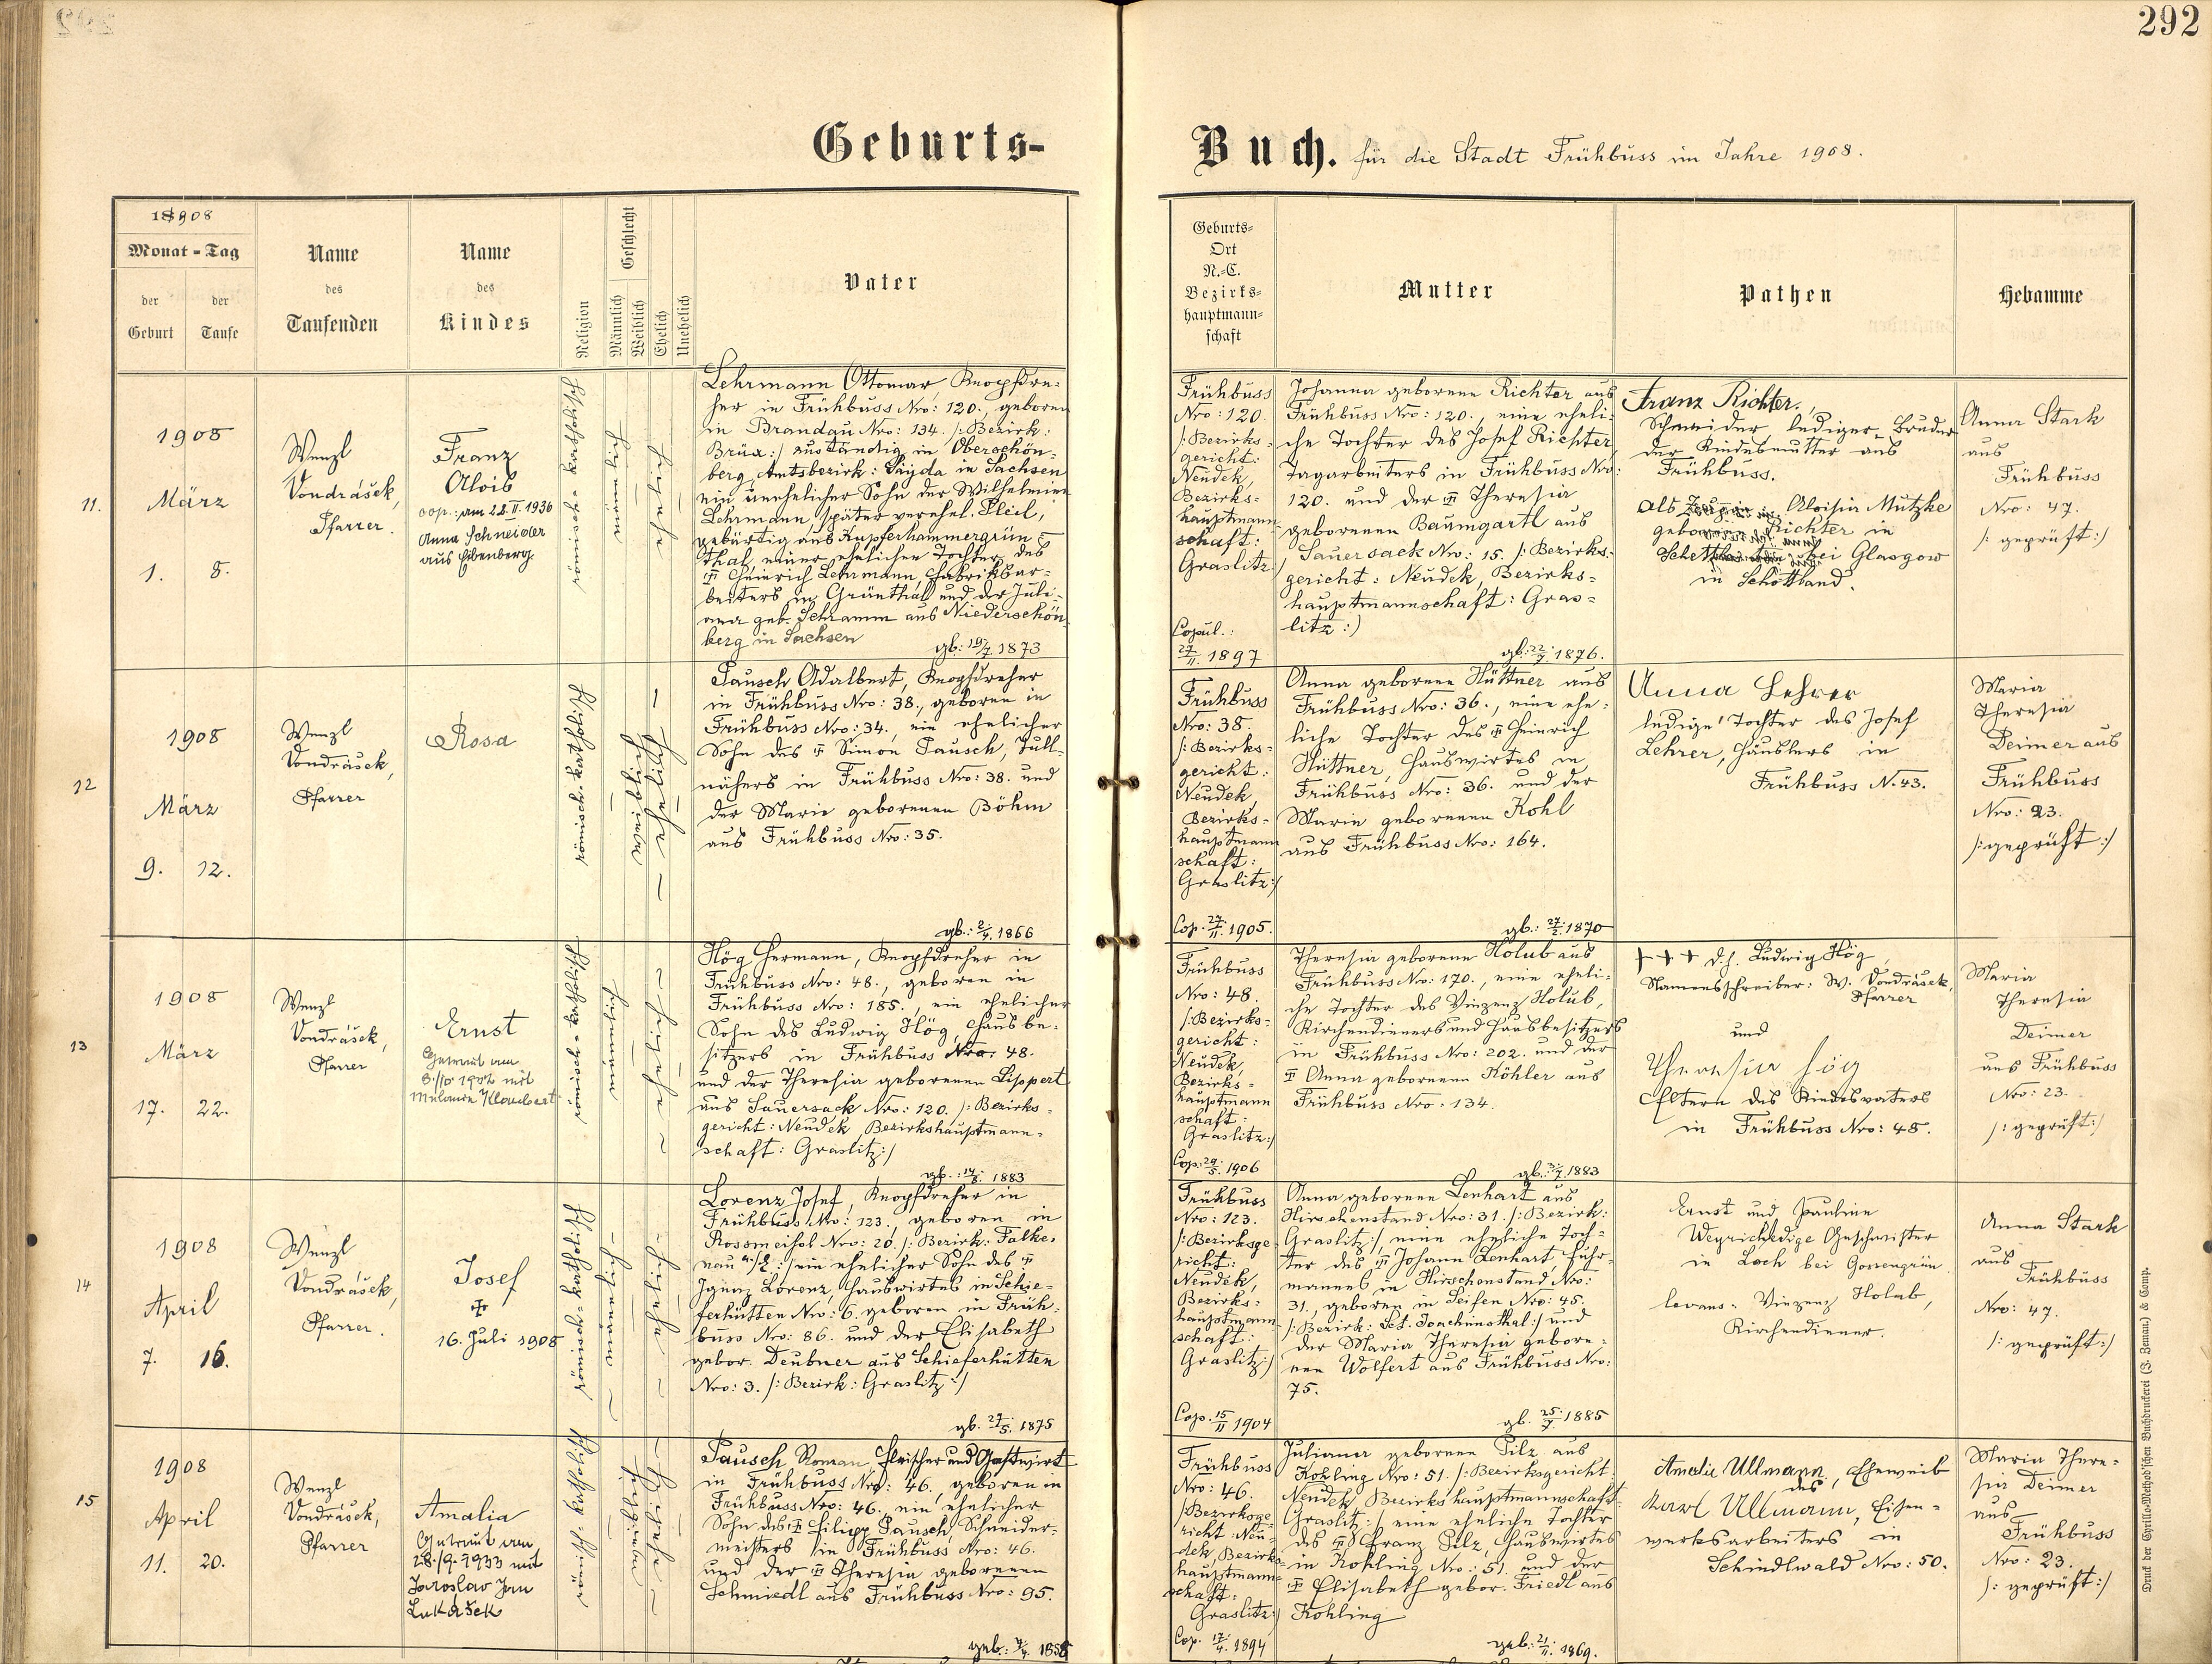 292
Geburts-
Buch. für die Stadt Frühbuss im Jahre 1908.
18908
Monat - Tag
der Geburt
der Taufe
Name des Taufenden
Name des Kindes
Religion
Geschlecht
Männlich
Weiblich
Ehelich
Unehelich
Vater
Geburts-
Ort
N.-C.
Bezirks-
hauptmann-
schaft
Mutter
Pathen
Hebamme
11.
1908
März
1. 8.
Wenzl
Vondrášek,
Pfarrer.
Franz
Alois
cop.: am 22.II.1936
Anna Schneider
aus Eibenberg.
römisch-katholisch
Lehrmann Ottomar, Knopfdre-
her in Frühbuss Nro: 120., geboren
in Brandau Nro: 134. /: Bezirk:
Brüx:/ zuständig in Oberschön-
berg, Amtsbezirk: Sayda in Sachsen
ein unehelicher Sohn der Wilhelmine
Lehrmann, später verehel.
gebürtig aus Kupferhammergrün-
thal, einer ehelichen Tochter des
Heinrich Lehrmann, Fabriksar-
beiters in Grünthal und der Juli-
ana geb. Schramm aus Niederschön-
berg in Sachsen
gb.: 19/7 1873
Frühbuss
Nro: 120.
/: Bezirks-
gericht:
Neudek,
Bezirks-
hauptmann-
schaft:
Graslitz:/
Copul.:
27/II. 1897
Johanna geborene Richter aus
Frühbuss Nro: 120., eine eheli-
che Tochter des Josef Richter,
Tagarbeiters in Frühbuss Nro:
120. und der Theresia
geborenen Baumgartl aus
Sauersack Nro: 15. /: Bezirks-
gericht: Neudek, Bezirks-
hauptmannschaft: Gras-
litz:/
gb.: 22/7. 1876.
Franz Richter,
Schneider lediger Bruder
der Kindesmutter aus
Frühbuss.
als Aloisia Mutzke
geborene Richter in
bei Glasgow
in Schottland.
Anna Stark
aus
Frühbuss
Nro: 47.
/: geprüft:/
12
1908
März
9. 12.
Wenzl
Vondrášek,
Pfarrer
Rosa
römisch-katholisch
Pausch Adalbert, Knopfdreher
in Frühbuss Nro: 38., geboren in
Frühbuss Nro: 34., ein ehelicher
Sohn des Simon Pausch, Tüll-
nähers in Frühbuss Nro: 38. und
der Marie geborenen Böhm
aus Frühbuss Nro: 35.
gb.: 2/4. 1866
Frühbuss
Nro: 38.
/: Bezirks-
gericht:
Neudek,
Bezirks-
hauptmann
schaft:
Graslitz:/
Cop. 27/II. 1905.
Anna geborene Hüttner aus
Frühbuss Nro: 36., eine ehe-
liche Tochter des Heinrich
Hüttner, Hauswirtes in
Frühbuss Nro: 36. und der
Marie geborenen Kohl
aus Frühbuss Nro: 164.
gb.: 27/2. 1870
Anna Lehrer
ledige Tochter des Josef
Lehrer, Häuslers in
Frühbuss N. 43.
Maria
Theresia
Deimer aus
Frühbuss
Nro: 23.
/: geprüft:/
13
1908
März
17. 22.
Wenzl
Vondrášek,
Pfarrer
Ernst
Getraut am
mit
römisch-katholisch
Hög Hermann, Knopfdreher in
Frühbuss Nro: 48., geboren in
Frühbuss Nro: 185., ein ehelicher
Sohn des Ludwig Hög, Hausbe-
sitzers in Frühbuss Nro: 48.
und der Theresia geborenen Lippert
aus Sauersack Nro: 120. /: Bezirks-
gericht: Neudek, Bezirkshauptmann-
schaft: Graslitz:/
gb.: 14/8. 1883
Frühbuss
Nro: 48.
/: Bezirks-
gericht:
Neudek,
Bezirks-
hauptmann
schaft:
Graslitz:/
Cop: 29/5. 1906
Theresia geborene Holub aus
Frühbuss Nro: 170., eine eheli-
che Tochter des Vinzenz Holub,
Kirchendieners und Hausbesitzers
in Frühbuss Nro: 202. und der
Anna geborenen Köhler aus
Frühbuss Nro: 134.
gb.: 3/7. 1883
+++ d.h. Ludwig Hög
Namensschreiber: W. Vondrášek,
Pfarrer
und
Theresia Hög
Eltern des Kindesvaters
in Frühbuss Nro: 48.
Maria
Theresia
Deimer
aus Frühbuss
Nro: 23.
/: geprüft:/
14
1908
April
7. 16.
Wenzl
Vondrášek,
Pfarrer.
Josef
✠
16. Juli 1908
römisch-katholisch
Lorenz Josef, Knopfdreher in
Frühbuss Nro: 123., geboren in
Rossmeisl Nro: 20. /: Bezirk: Falke-
nau a/E:/ ein ehelicher Sohn des
Ignaz Lorenz, Hauswirtes in Schie-
ferhütten Nro: 6. geboren in Früh-
buss Nro: 86. und der Elisabeth
gebor. Deubner aus Schieferhütten
Nro: 3. /: Bezirk: Graslitz:/
gb. 27/5. 1875
Frühbuss
Nro: 123.
/: Bezirksge-
richt:
Neudek,
Bezirks-
hauptmann-
schaft:
Graslitz:/
Cop. 15/II 1904
Anna geborene Lenhart aus
Hirschenstand Nro: 31. /: Bezirk:
Graslitz:/, eine eheliche Toch-
ter des Johann Lenhart, Fuhr-
mannes in Hirschenstand Nro:
31., geboren in Seifen Nro: 45.
/: Bezirk: Sct. Joachimsthal:/ und
der Maria Theresia gebore-
nen Wolfert aus Frühbuss Nro:
75.
gb. 25/7. 1885
Ernst und Pauline
Weyrich ledige Geschwister
in Loch bei Gossengrün.
levans: Vinzenz Holub,
Kirchendiener.
Anna Stark
aus
Frühbuss
Nro: 47.
/: geprüft:/
15
1908
April
11. 20.
Wenzl
Vondrášek,
Pfarrer
Amalia
Getraut am
28./9. 1933 mit
Jaroslav Jan
Lukášek
römisch-katholisch
Pausch Roman, Fleischer und Gastwirt
in Frühbuss Nro: 46., geboren in
Frühbuss Nro: 46. ein ehelicher
Sohn des Filipp Pausch, Schneider-
meisters in Frühbuss Nro: 46.
und der Theresia geborenen
Schmiedl aus Frühbuss Nro: 95.
Frühbuss
Nro: 46.
/Bezirksge-
richt: Neu-
dek, Bezirks-
hauptmann-
schaft:
Graslitz:/
Cop. 17/4. 1894
Juliana geborene Pilz aus
Kohling Nro: 51. /: Bezirksgericht:
Neudek, Bezirkshauptmannschaft
Graslitz:/ eine eheliche Tochter
des Franz Pilz, Hauswirtes
in Kohling Nro: 51. und der
Elisabeth gebor. Friedl aus
Kohling
geb.: 21/II. 1869.
Amalie Ullmann, Eheweib
des
Karl Ullmann, Eisen-
werksarbeiters in
Schindlwald Nro: 50.
Maria There-
sia Deimer
aus
Frühbuss
Nro: 23.
/: geprüft:/
Druck der Cyrillo-Method'schen Buchdruckerei (J. Zeman.) & Comp.